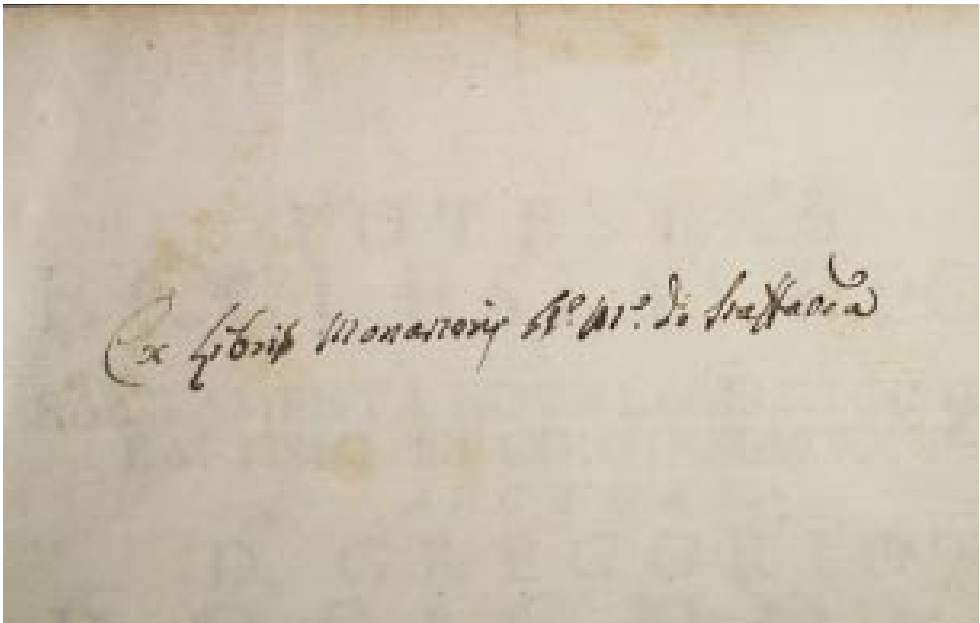 Ex Libris Monasterij Stę. Mę. de Staffarda